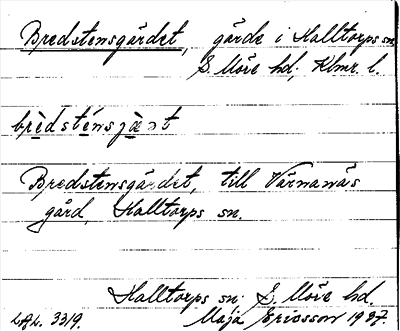 Bredstensgärdet, gärde i Halltorps sn
S. Möre hd, Klmr. l.
brèdsténsjæ̀ət
Bredstensgärdet, till Värnanäs
gård, Halltorps sn.
Halltorps sn S. Möre hd.
LAL. 3319. Maja Ericsson 1937.